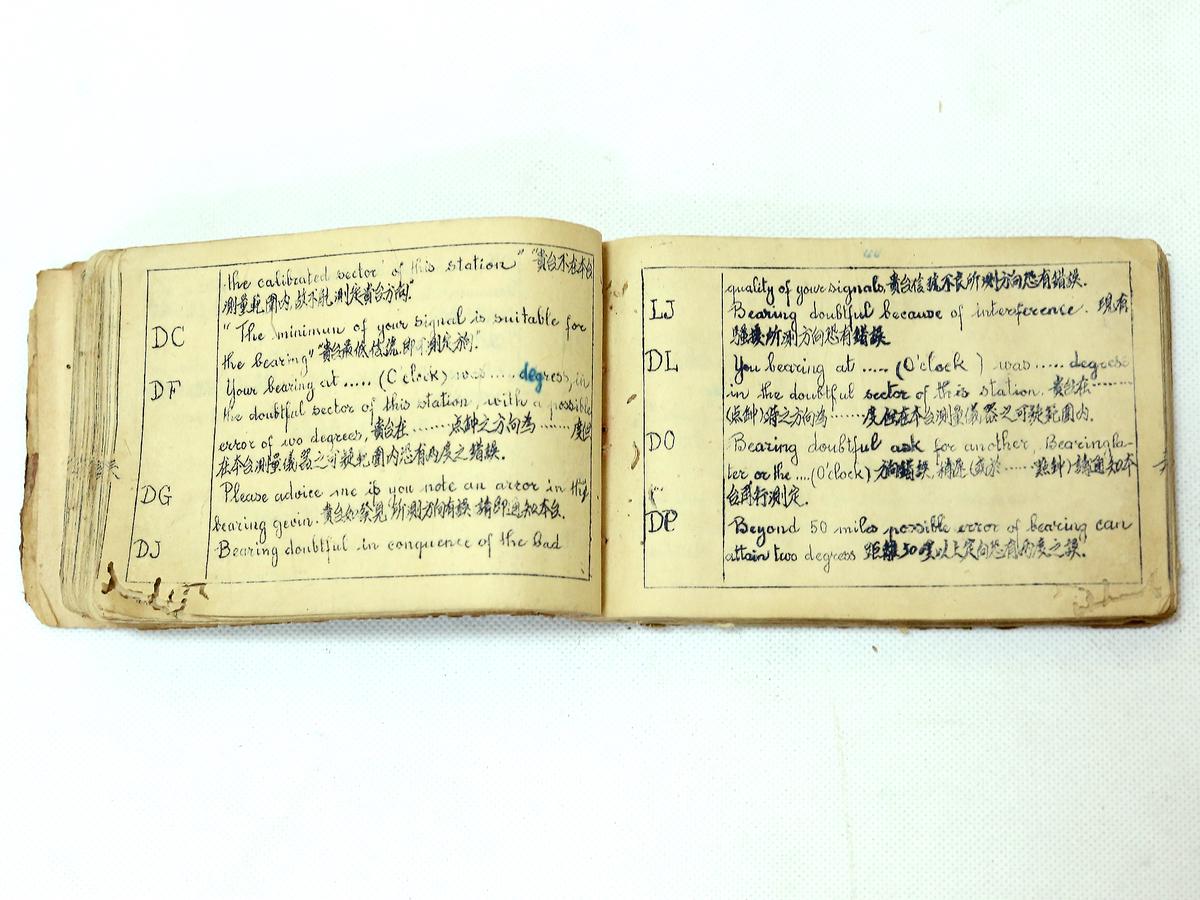 the calibrated sector of this station" "貴台不在本台
測量範圍內,故不能測定貴台方向."
DC "The minimun of your signal is suitable for
the bearing" "貴台最低信號,即不測定方向."
DF Your bearing at ..... (O'clock) was .... degress, in
the doubtful sector of this station, with a possible
error of wo degrees, 貴台在 ........ 点鈡之方向為 ........ 度但
在本台測量儀器之可疑範圍內恐有两度之錯誤.
DG Please advice me is you note an arror in the
bearing gevin. 貴台如發見所測方向有誤 請即通知本台.
DJ Bearing doubtful in conquence of the bad
quality of your signals, 貴台信號不良所測方向恐有錯誤.
LJ Bearing doubtful because of interference. 現有
騷擾所測方向恐有錯誤
DL You bearing at ..... (O'clock) was ..... degrees
in the doubtful sector of this station. 貴台在 .........
(点鈡)時之方向為 ........ 度但在本台測量儀器之可疑範圍内.
DO Bearing doubtful ask for another, Bearing la-
ter or the .... (O'clock) 方向錯誤, 稍遲(或於 ...... 點鈡)請通知本
台再行測定.
DP Beyond 50 miles possible error of bearing can
attain two degrees 距離50哩以上定向恐有兩度之誤.